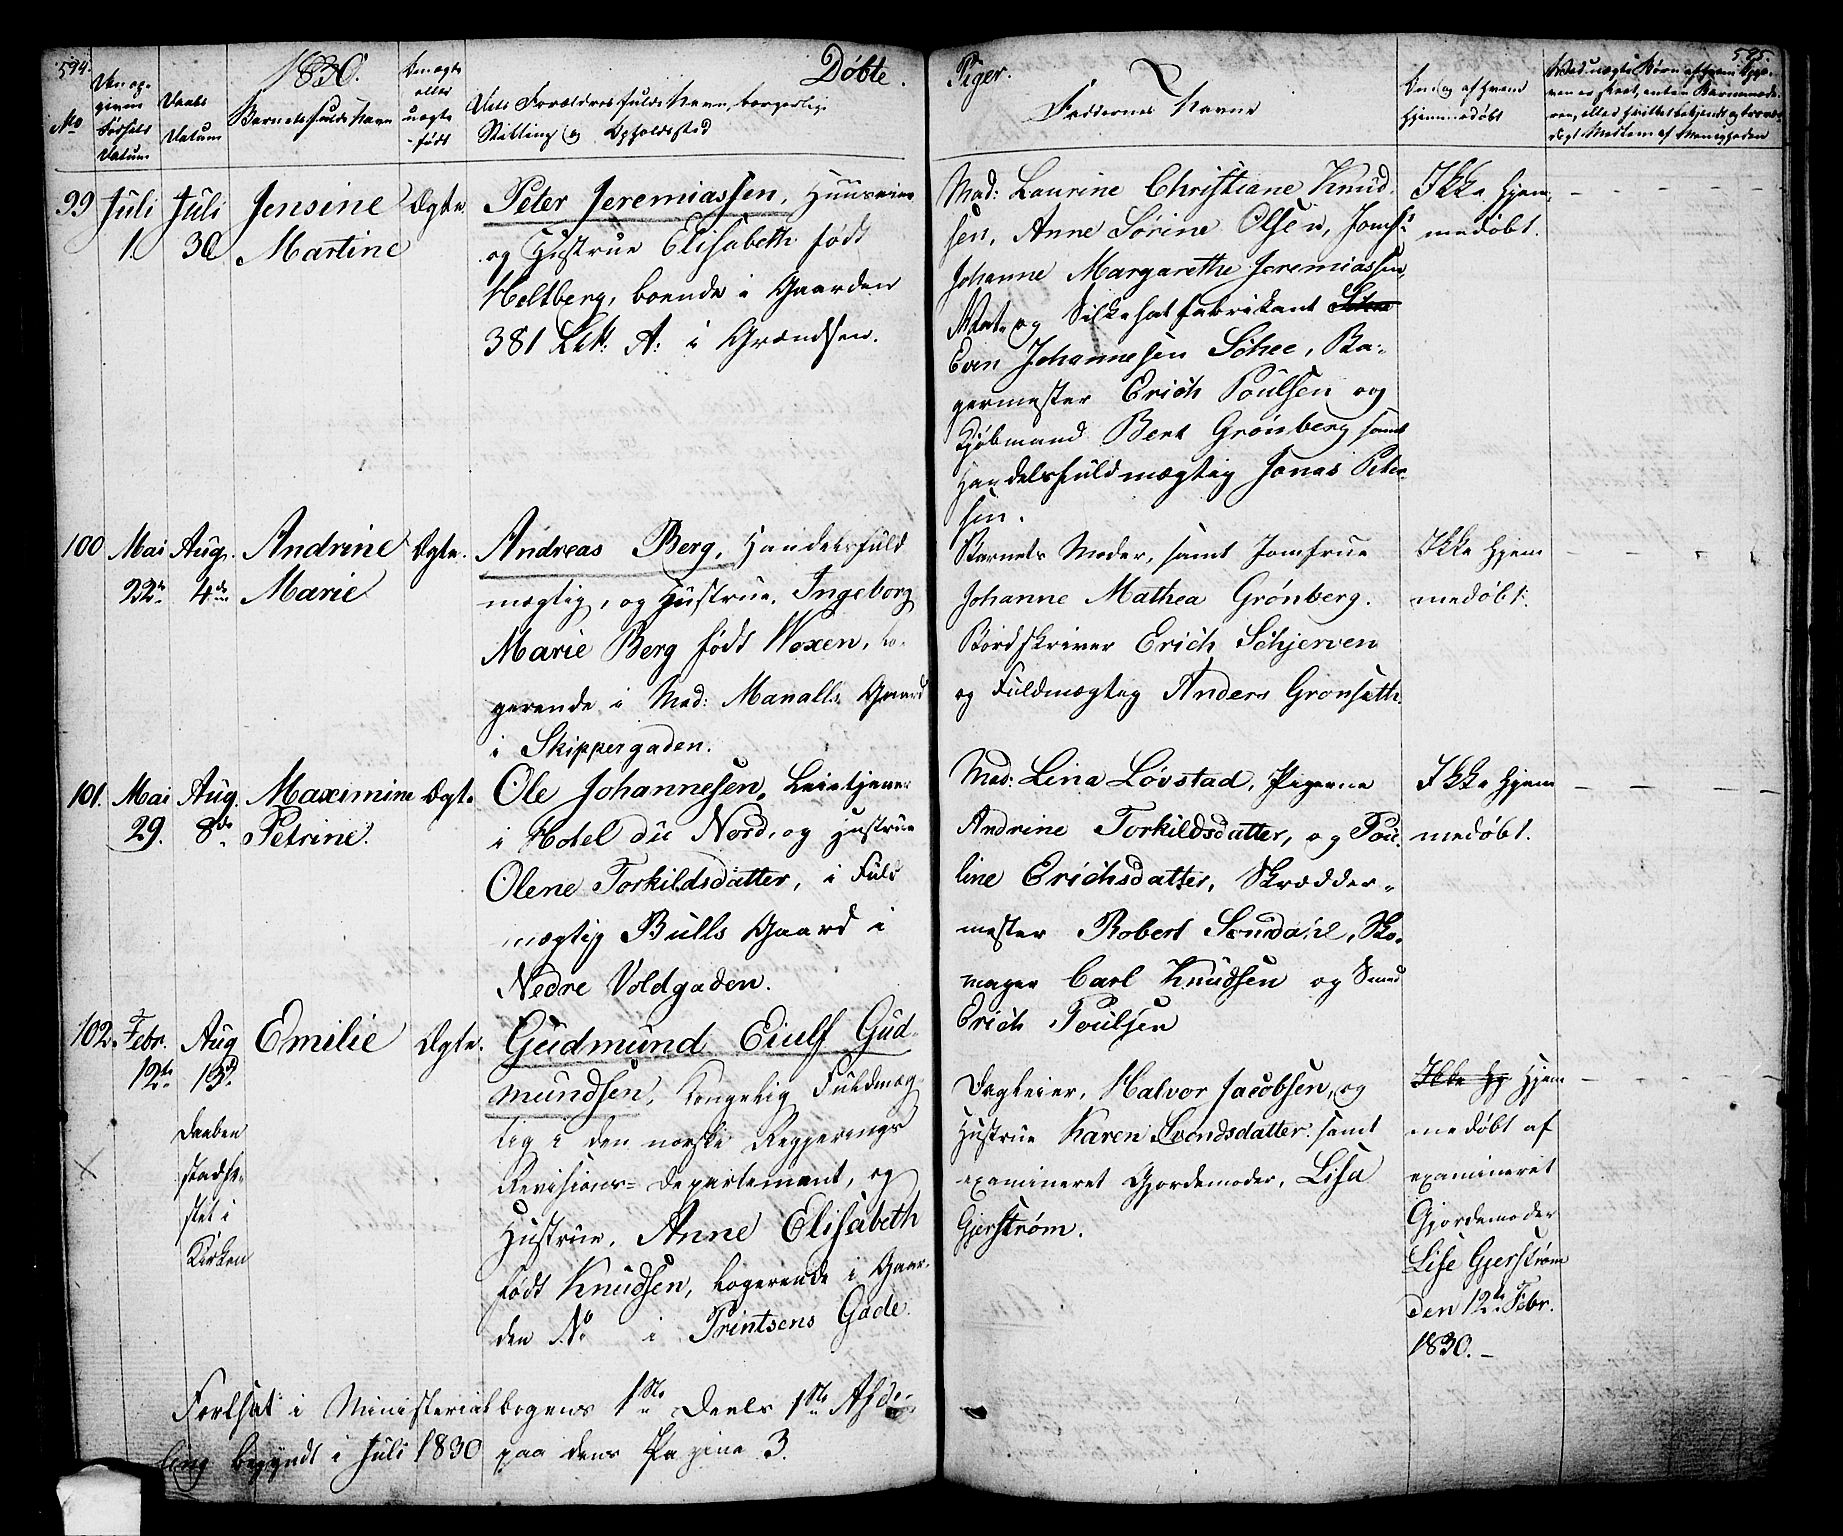 594.
1830.
Døbte
Piger.
595.
No
Den op-
given
Fødsels
Datum
Daabs
Datum
Barnets fulde Navn
Om ægte
eller
uægte
født
Dets Forældres fulde Navn, borgerlige
Stilling og Opholdssted
Faddernes Navne
Om og af hvem
hjemmedøbt
99
Juli
1.
Juli
30
Jensine
Martine
Ægte.
Peter Jeremiassen, Huuseier
og Hustrue Elisabeth født
Holtberg, boende i Gaarden
381 Litr: A: i Grændsen.
Mad: Laurine Christiane Knud-
sen, Anne Sørine Olsen, Jomfr:
Johanne Margarethe Jeremiassen,
og Silkehatfabrikant
Even Johannesen Schee, Ba-
germester Erich Poulsen og
Kjøbmand Bent Grønberg samt
Handelsfuldmægtig Jonas Peter-
sen.
Ikke hjem-
medøbt.
100
Mai
22de
Aug.
4de
Andrine
Marie
Ægte.
Andreas Berg, Handelsfuld
mægtig, og Hustrue, Ingeborg
Marie Berg født Woxen, lo-
gerende i Mad: Manalls Gaard
i Skippergaden.
Barnets Moder, samt Jomfrue
Johanne Mathea Grønberg.
Bordskriver Erich Schjerven
og Fuldmægtig Anders Gronseth.
Ikke hjem
medøbt.
101.
Mai
29.
Aug.
8de
Maximine
Petrine.
Ægte
Ole Johannesen, Leietjener
i Hotel du Nord, og Hustrue
Olene Torkildsdatter, i Fuld
mægtig Bulls Gaard i
Nedre Voldgaden.
Mad: Lina Løvstad, Pigerne
Andrine Torkildsdatter, og Pou-
line Erichsdatter, Skrædder-
mester Robert Sundahl, Sko-
mager Carl Knudsen og Smed
Erich Poulsen
Ikke hjem
medøbt.
102.
Febr.
12te
Aug
13d.
Daaben
stadfæ-
stet i
Kirken
Emilie
Ægte.
Gudmund Eiulf Gud-
mundsen, Kongelig Fuldmæg
tig i den norske Regjerings
Revisions-Departement, og
Hustrue, Anne Elisabeth
født Knudsen, logerende i Gaar-
den No i Printsens Gade.
Dagleier, Halvor Jacobsen, og
Hustrue Karen Svendsdatter samt
examineret Gjordemoder, Lisa
Gjerstrøm.
Ikke Hj Hjem
medøbt af
examineret
Gjordemoder
Lise Gjerstrøm
den 12te Febr.
1830.
Fortsat i Ministerialbogens 1ste Deels 1ste Afde-
ling begyndt i Juli 1830 paa dens Pagina 3.